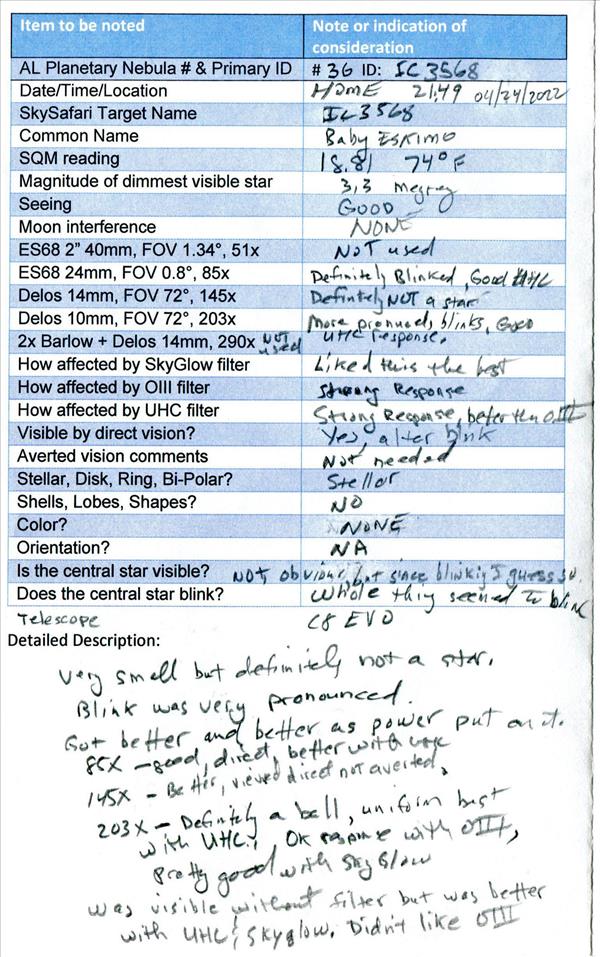 Item to be noted Note or indication of consideration
AL Planetary Nebula # & Primary ID # 36 ID: IC 3568
Date/Time/Location HOME 21:49 04/24/2022
SkySafari Target Name IC 3568
Common Name Baby ESKIMO
SQM reading 18.81 74° F
Magnitude of dimmest visible star 3,3 Megrez
Seeing GOOD
Moon interference NONE
ES68 2” 40mm, FOV 1.34°, 51x NOT used
ES68 24mm, FOV 0.8°, 85x Definitely Blinked, Good UHC
Delos 14mm, FOV 72°, 145x Definitely NOT a star
Delos 10mm, FOV 72°, 203x More pronounced, blinks, Good
2x Barlow + Delos 14mm, 290x NOT used UHC response.
How affected by SkyGlow filter Liked this the best
How affected by OIII filter Strong Response
How affected by UHC filter Strong Response, better than OIII
Visible by direct vision? Yes, after blink
Averted vision comments Not needed
Stellar, Disk, Ring, Bi-Polar? Stellar
Shells, Lobes, Shapes? NO
Color? NONE
Orientation? NA
Is the central star visible? NOT obvious, but since blinking I guess so.
Does the central star blink? Whole thing seemed to blink
Telescope C8 EVO
Detailed Description:
Very small but definitely not a star.
Blink was very pronounced.
Got better and better as power put on it.
85X - good, direct, better with UHC
145X - Better, viewed direct not averted,
203X - Definitely a ball, uniform best
with UHC. Ok response with OIII,
Pretty good with SkyGlow
Was visible without filter but was better
with UHC & Skyglow. Didn't like OIII